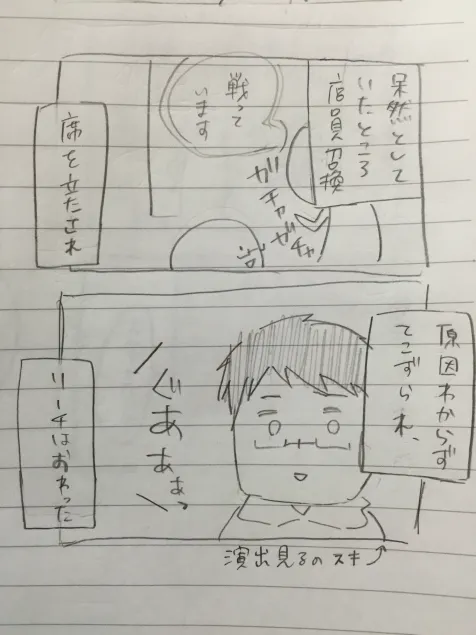 呆然として
いたところ
店員召換
戦って
います
ガチャガチャ
席を立たされ
原因わからず
てこずられ、
ぐあああっ
リーチはおわった
演出見るのスキ